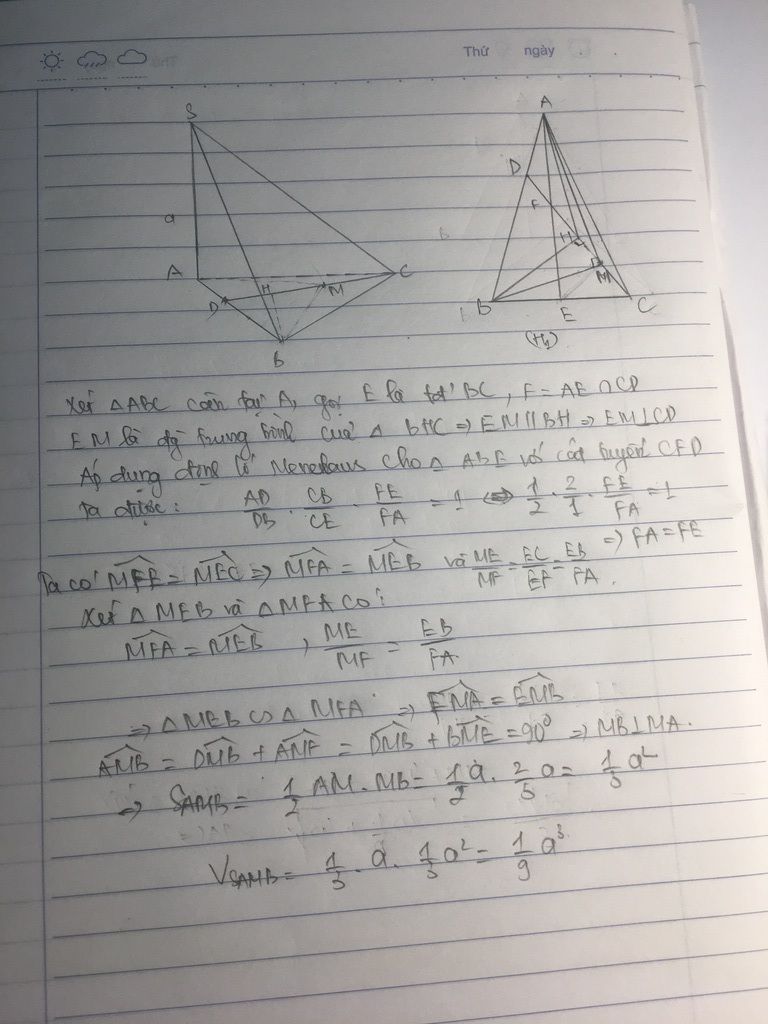 Thứ ngày
S
A
a
D
F
A
C
H
M
D
H
M
B
B
E
C
(H1)
Xét △ABC cân tại A, gọi E là tđ BC, F = AE ∩ CD
EM là đg trung bình của △ BHC ⇒ EM // BH ⇒ EM⊥CD
Áp dụng định lí Menelaus cho △ ABE với cát tuyến CFD
Ta được: AD/DB . CB/CE . FE/FA = 1 ⇔ 1/2 . 2/1 . FE/FA = 1
⇒ FA = FE
Ta có MFE = MEC ⇒ MFA = MEB và ME/MF = EC/EF = EB/FA.
Xét △ MEB và △ MFA có:
MFA = MEB , ME/MF = EB/FA
⇒ △MEB ∽ △ MFA ⇒ FMA = EMB
AMB = DMB + AMF = DMB + BME = 90⁰ ⇒ MB⊥MA.
⇒ SAMB = 1/2 AM . MB = 1/2 a . 2/3 a = 1/3 a²
VSAMB = 1/3 . a . 1/3 a² = 1/9 a³